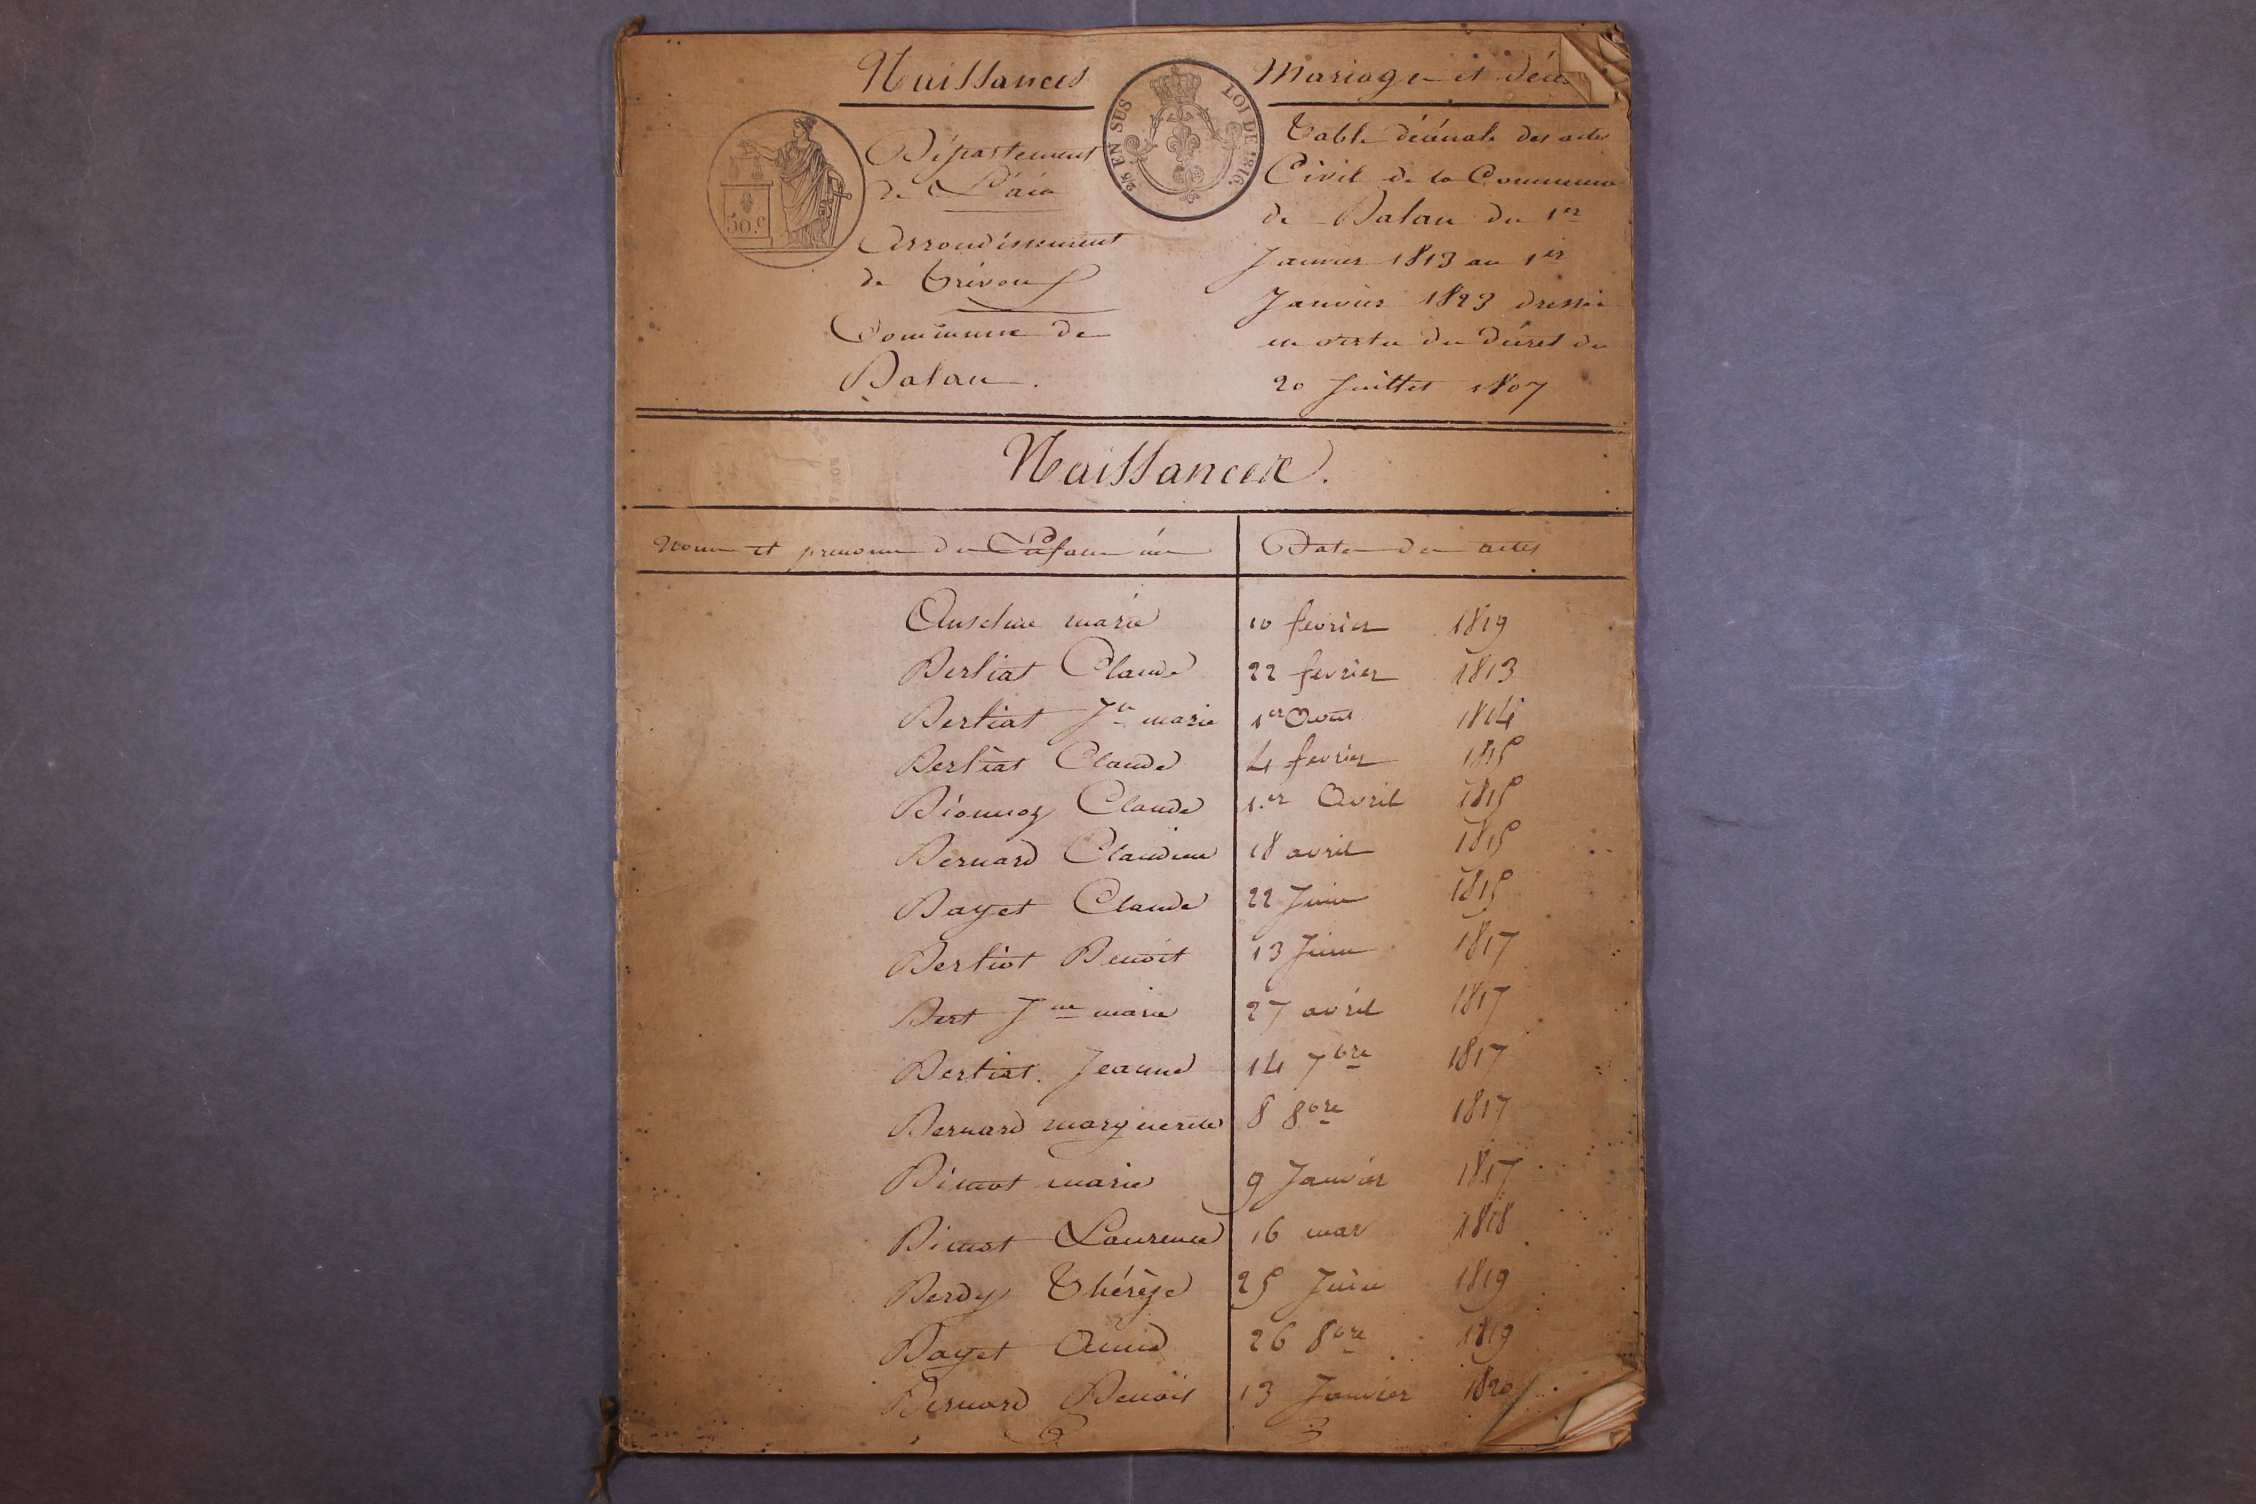 Naissances
Mariage et décès
LOI DE 1816.
2/5 EN SUS
50.c
Département
de L'ain
Arrondissement
de Trévoux
Commune de
Balan.
Table décénale des actes
Civil de la Commune
de Balan du 1er
Janvier 1813 au 1er
Janvier 1823 dressée
en vertu du décret du
20 Juillet 1807
Naissances.
Nom et prenom des Enfans nés Date des actes
Anselme marie 10 fevrier 1819
Berliat Claude 22 fevrier 1813
Berliat Jn marie 1er Aout 1814
Berliat Claude 4 fevrier 1815
Bionnoz Claude 1.er Avril 1815
Bernard Claudine 18 avril 1815
Bayet Claude 22 Juin 1815
Berliot Benoit 13 Juin 1817
Bert Jne marie 27 avril 1817
Berliat. Jeanne 14 7bre 1817
Bernard marguerite 8 8bre 1817
Bimot marie 9 Janvier 1817
Bimot Laurence 16 mar 1818
Berdy Thérèse 25 Juin 1819
Bayet 26 8bre 1819
Bernard Benoit 13 Janvier 1820